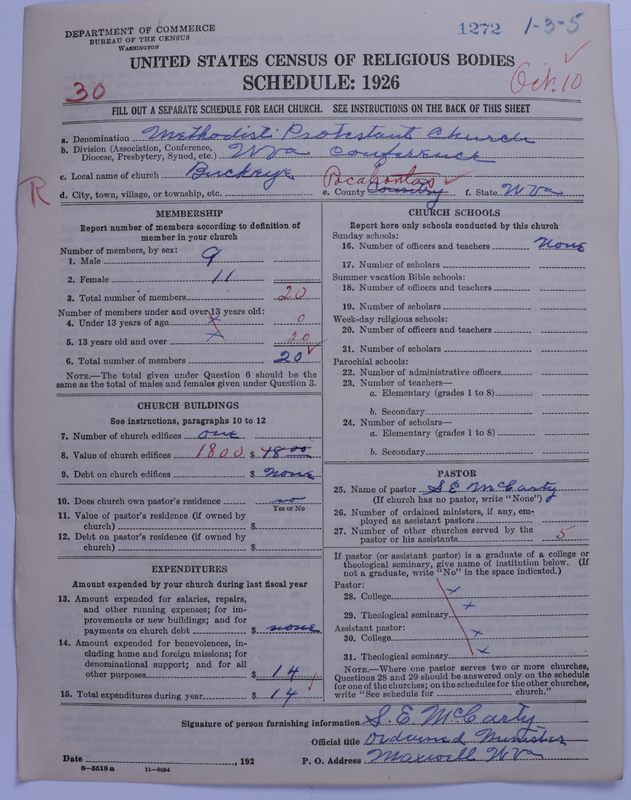 DEPARTMENT OF COMMERCE
BUREAU OF THE CENSUS
WASHINGTON
1272 1-3-5
UNITED STATES CENSUS OF RELIGIOUS BODIES
SCHEDULE: 1926
30
Oct. 10
FILL OUT A SEPARATE SCHEDULE FOR EACH CHURCH. SEE INSTRUCTIONS ON THE BACK OF THIS SHEET
a. Denomination Methodist Protestant Church
b. Division (Association, Conference,
Diocese, Presbytery, Synod, etc.) W Va Conference
c. Local name of church Buckeye
R
d. City, town, village, or township, etc. e. County Pocahontas f. State W Va
MEMBERSHIP
Report number of members according to definition of
member in your church
Number of members, by sex:
1. Male 9
2. Female 11
3. Total number of members 20
Number of members under and over 13 years old:
4. Under 13 years of age x 0
5. 13 years old and over x 20
6. Total number of members 20
NOTE.—The total given under Question 6 should be the
same as the total of males and females given under Question 3.
CHURCH BUILDINGS
See instructions, paragraphs 10 to 12
7. Number of church edifices one
8. Value of church edifices 1800 $ 18 00
9. Debt on church edifices $ none
10. Does church own pastor's residence no
Yes or No
11. Value of pastor's residence (if owned by
church) $
12. Debt on pastor's residence (if owned by
church) $
EXPENDITURES
Amount expended by your church during last fiscal year
13. Amount expended for salaries, repairs,
and other running expenses; for im-
provements or new buildings; and for
payments on church debt $ none
14. Amount expended for benevolences, in-
cluding home and foreign missions; for
denominational support; and for all
other purposes $ 14
15. Total expenditures during year $ 14
CHURCH SCHOOLS
Report here only schools conducted by this church
Sunday schools:
16. Number of officers and teachers none
17. Number of scholars
Summer vacation Bible schools:
18. Number of officers and teachers
19. Number of scholars
Week-day religious schools:
20. Number of officers and teachers
21. Number of scholars
Parochial schools:
22. Number of administrative officers
23. Number of teachers—
a. Elementary (grades 1 to 8)
b. Secondary
24. Number of scholars—
a. Elementary (grades 1 to 8)
b. Secondary
PASTOR
25. Name of pastor S E McCarty
(If church has no pastor, write "None")
26. Number of ordained ministers, if any, em-
ployed as assistant pastors
27. Number of other churches served by the
pastor or his assistants 5
If pastor (or assistant pastor) is a graduate of a college or
theological seminary, give name of institution below. (If
not a graduate, write "No" in the space indicated.)
Pastor:
28. College x
29. Theological seminary x
Assistant pastor:
30. College x
31. Theological seminary x
NOTE.—Where one pastor serves two or more churches,
Questions 28 and 29 should be answered only on the schedule
for one of the churches; on the schedules for the other churches,
write "See schedule for church."
Signature of person furnishing information S. E McCarty
Official title Ordained Minister
Date , 192 P. O. Address Maxwell W Va
8—5518 a 11—9054